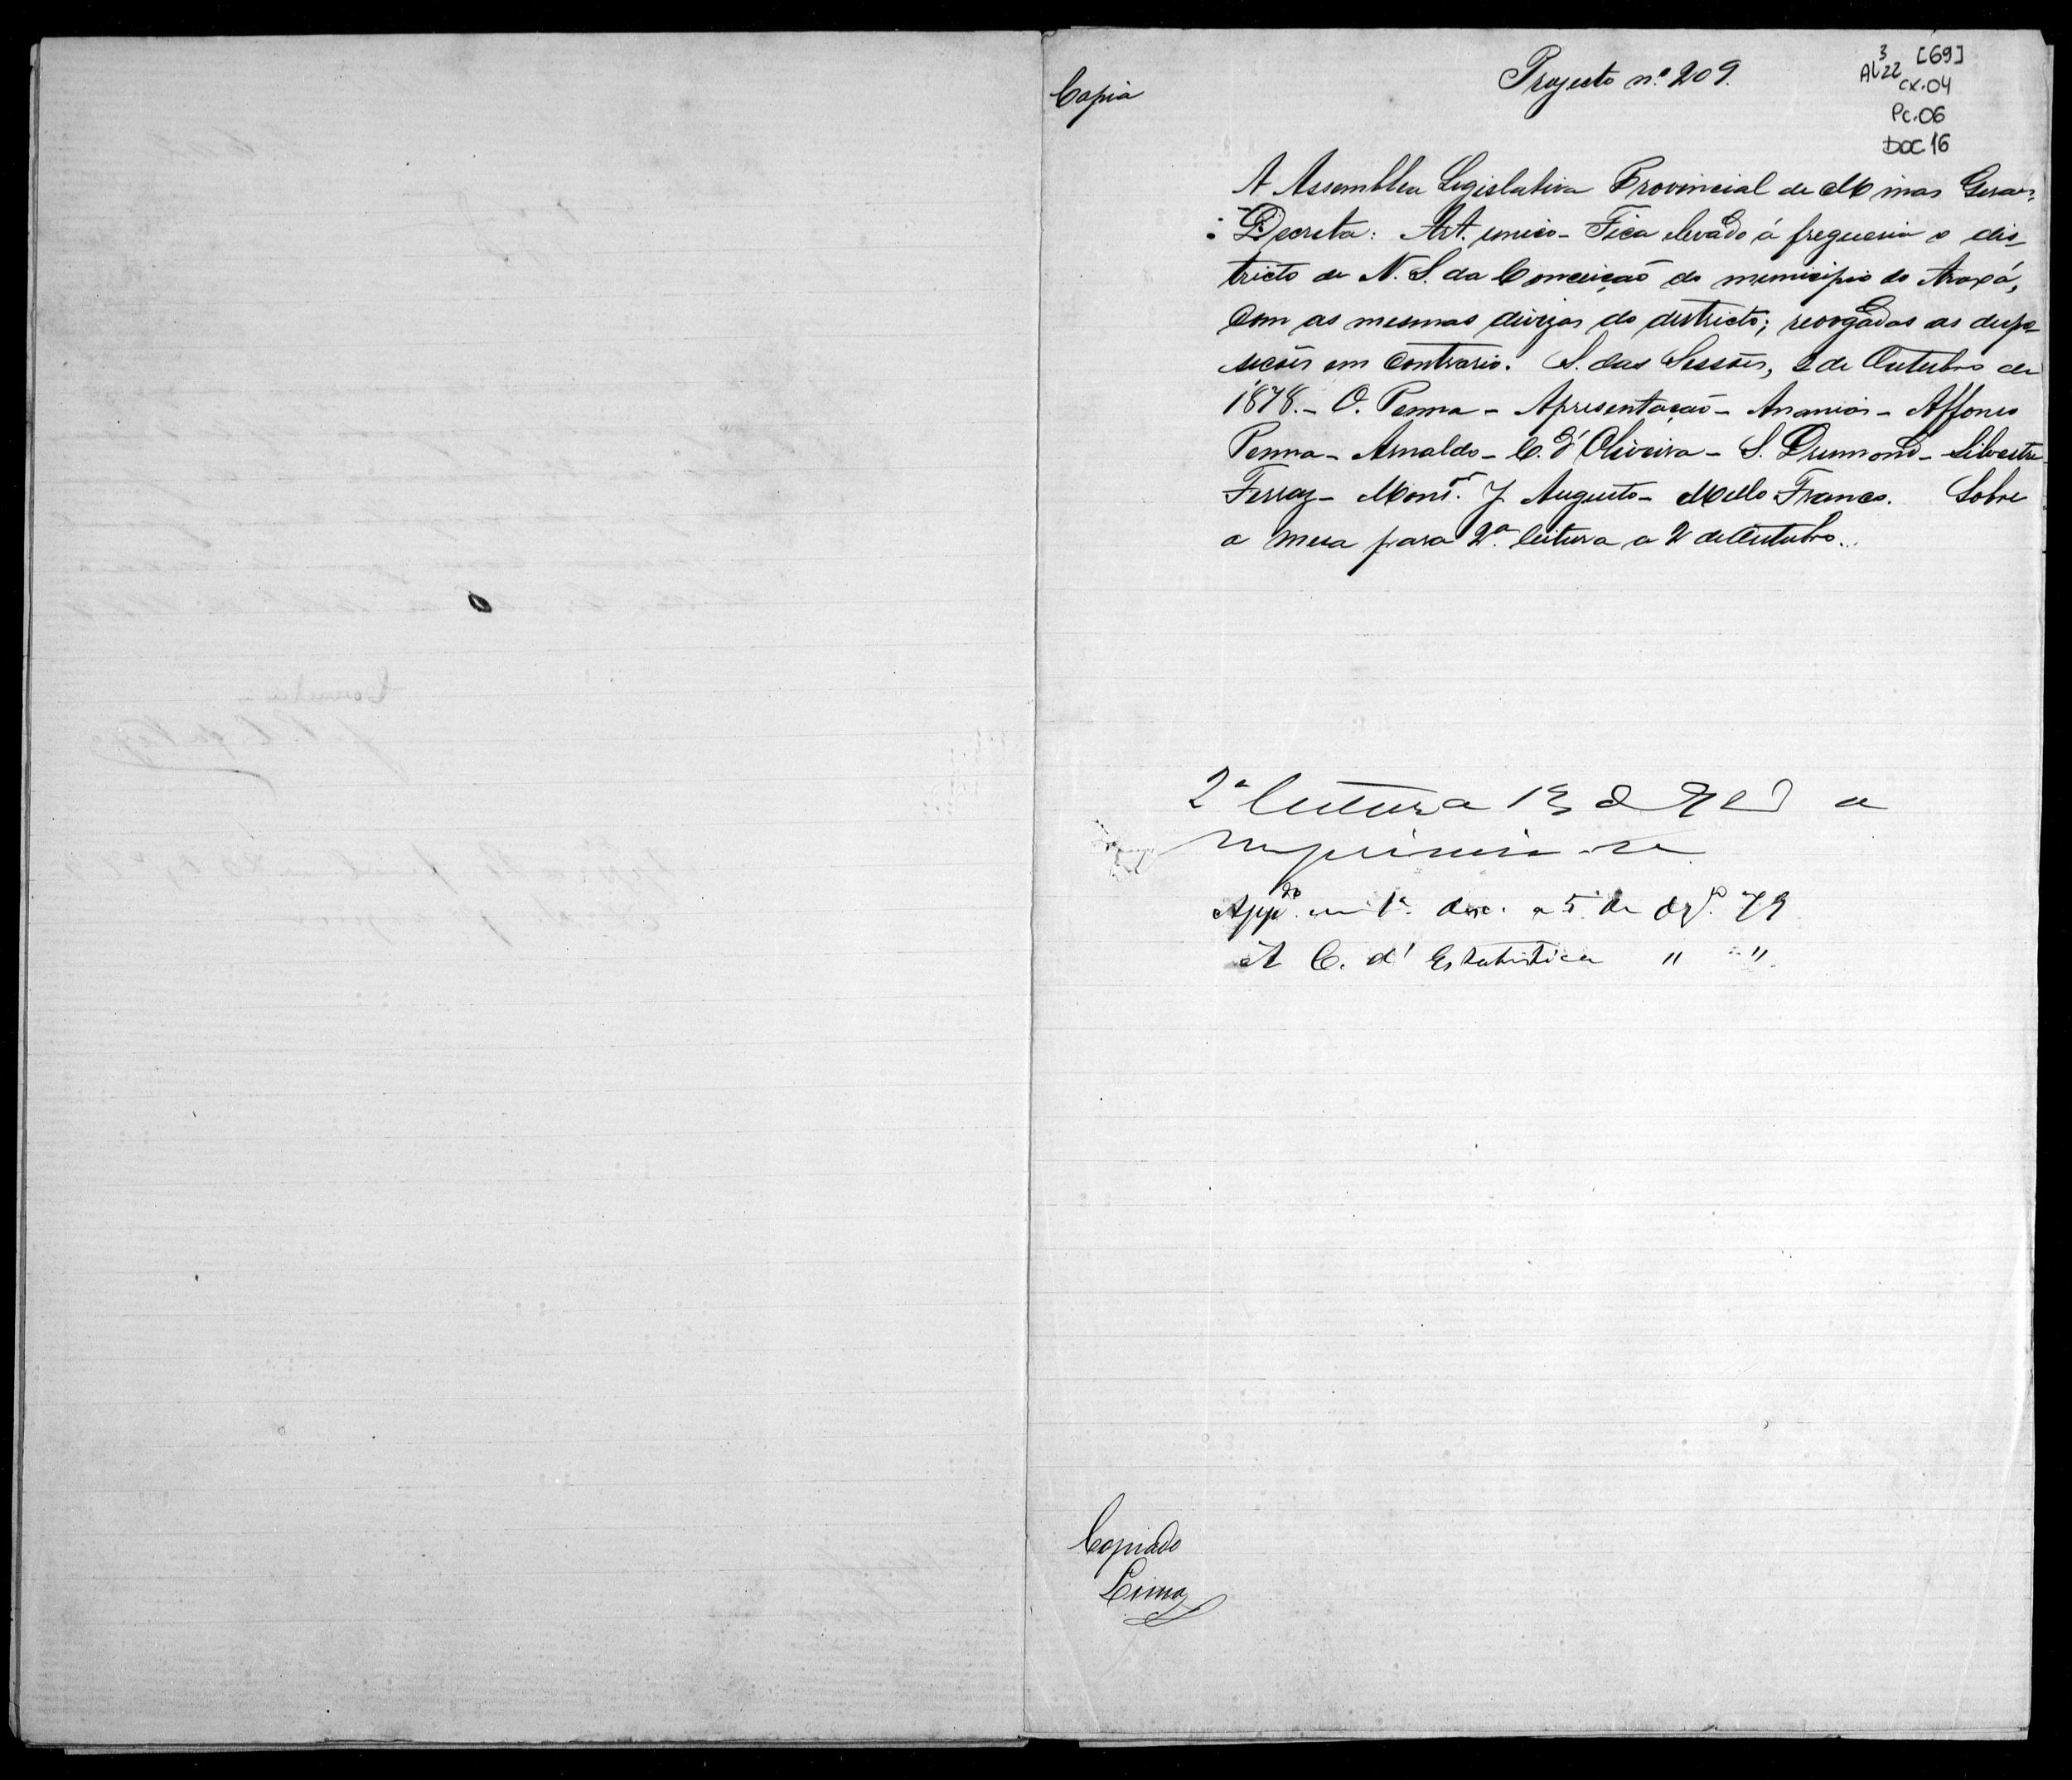 Copia
Projecto n.º 209.
3 [69]
AL 22
cx.04
Pc.06
DOC 16
A Assemblea Legislativa Provincial de Minas Geraes
Decreta: Art. unico - Fica elevado á freguesia o dis-
tricto de N. S. da Conceição do municipio do Araxá,
com as mesmas divizas do districto; revogadas as dispo-
sições em contrario. S. das Sessões, 2 de Outubro de
1878. - O. Penna - Apresentação - Ananias - Affonso
Penna - Arnaldo - C. d'Oliveira - S. Drumond - Silvestre
Ferraz - Mons.or J. Augusto - Mello Franco. Sobre
a mesa para 2.ª leitura a 2 de Outubro..
2ª leitura a
imprimir-se
App.do em 1ª disc. a 5 de 79
Á C. d'Estatistica " "
Copiado
Lima